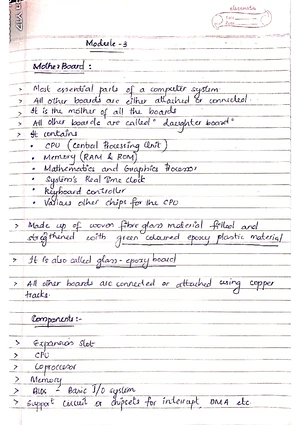 Module - 3
Mother Board :
> Most essential parts of a computer system
> All other boards are either attached or connected.
> It is the mother of all the boards
> All other boards are called "daughter board"
> It contains
• CPU (Central Processing Unit)
• Memory (RAM & ROM)
• Mathematics and Graphics Processor
• System's Real Time Clock
• Keyboard Controller
• Various other chips for the CPU
> Made up of woven fibre glass material filled and
strengthened with green coloured epoxy plastic material
> It is also called glass-epoxy board
> All other boards are connected or attached using copper
tracks.
Components :-
> Expansion Slot
> CPU
> Coprocessor
> Memory
> BIOS - Basic I/O system
> Support circuit or chipsets for interrupt, DMA etc.